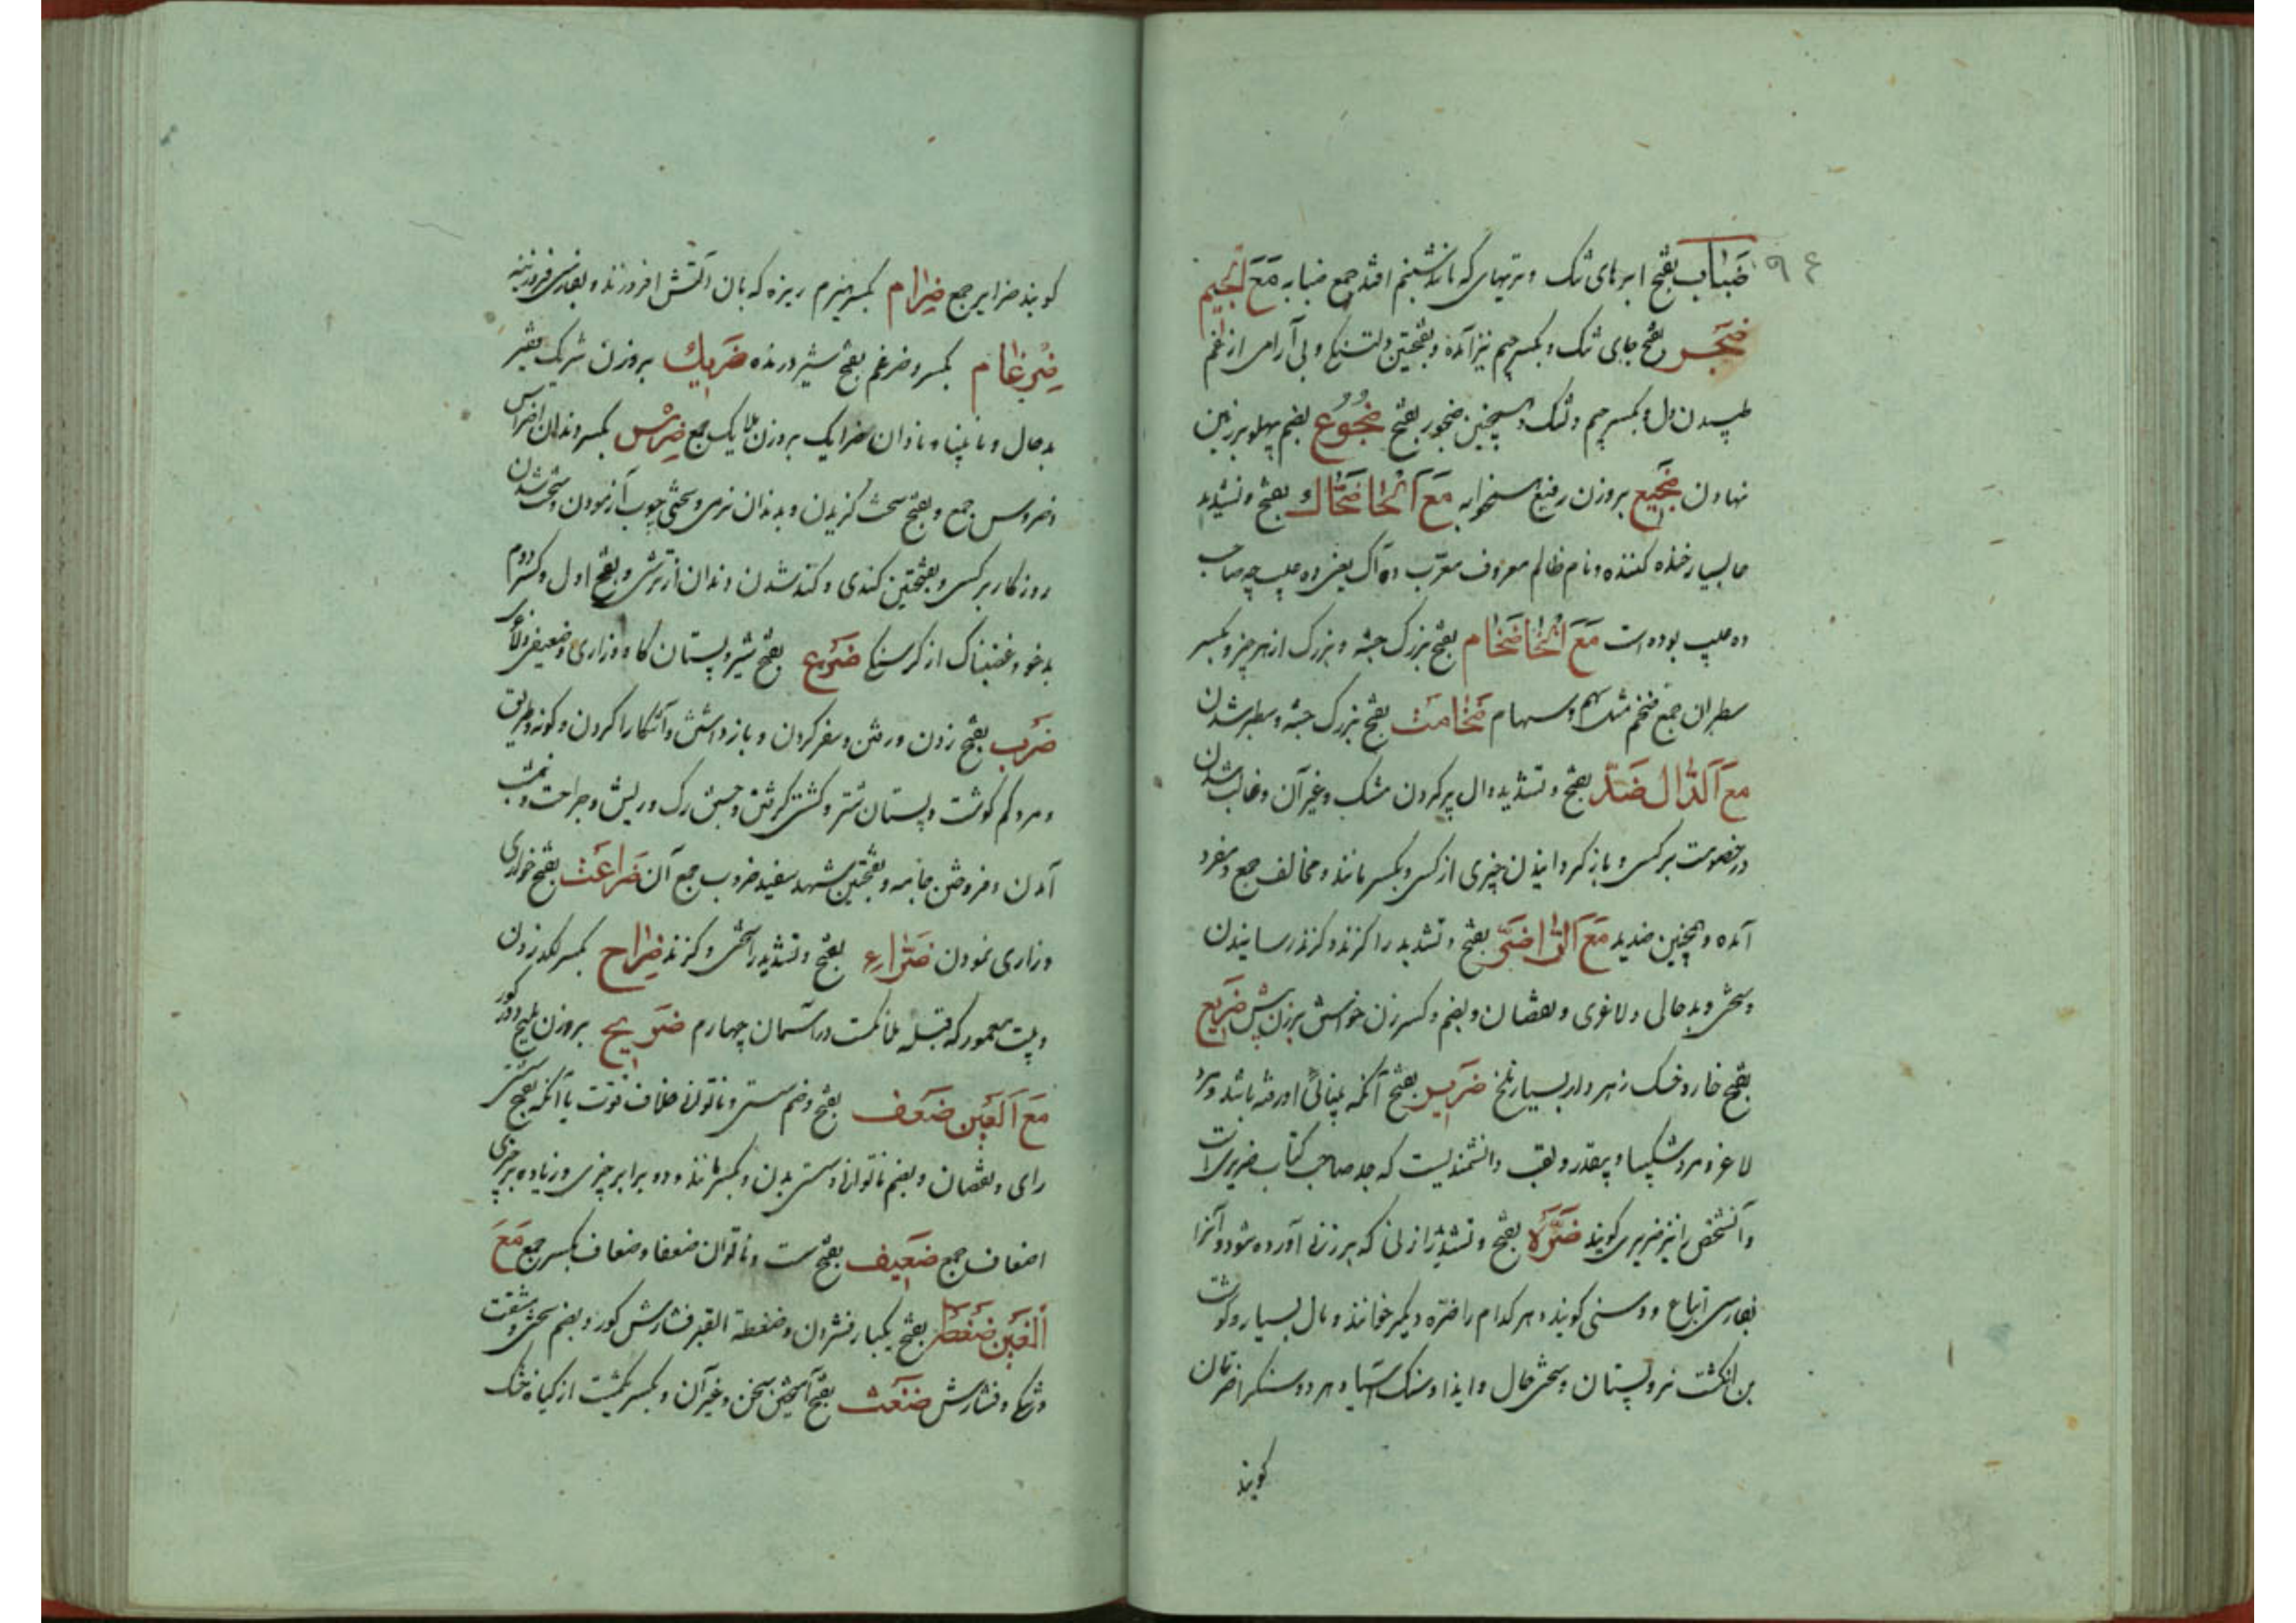 ۹۴
ضباب بفتح ابرهای تنک و تریهای که مانند شبنم افتد جمع ضبابه مَعَ الجیم
ضجر بفتح جای تنک و بکسر جیم نیز آمده و بفتحتین دلتنکی و بی آرامی از غم
طپیدن دل و بکسر جیم دلتنک و همچنین ضجور بفتح ضجوع بضم پهلو بر زمین
نهادن ضجیع بروزن رفیع همخوابه مَعَ الحا ضحّاک بفتح و تشدید
حا بسیار خنده کننده و نام ظالم معروف معرّب ده آک یعنی ده عیب چه صاحب
ده عیب بوده است مَعَ الخا ضخام بفتح بزرک جثه و بزرک از هر چیز و بکسر
سطبران جمع ضخم مثل سهم و سهام ضخامت بفتح بزرک جثه و سطبر شدن
مع الدال ضدّ بفتح و تشدید دال پر کردن مشک و غیر آن و غالب شدن
در خصومت بر کسی و باز کردانیدن چیزی از کسی و بکسر مانند و مخالف جمع و مفرد
آمده و همچنین ضدید مَعَ الرا ضرّ بفتح و تشدید را کزند و کزند رسانیدن
و سختی و بد حالی و لاغری و نقصان و بضم و کسر زن خواستن بر زن پیش ضریع
بفتح خار و خسک زهردار بسیار تلخ ضریر بفتح آنکه بینائی او رفته باشد و مرد
لاغر و مرد شکیبا و بیقدر و لقب دانشمندیست که جد صاحب کتاب ضریری است
و آنشخص را نیز ضریری کویند ضرّه بفتح و تشدید را زنی که بر زنی آورده شود و آنرا
بفارسی انباغ و وسنی کویند و هر کدام را ضره دیکر خوانند و مال بسیار و کوشت
بن انکشت نر و پستان و سختی حال و ایذا و سنک آسیا و هر دو سنک را ضرتان
کویند
کویند ضرایر جمع ضرام بکسر هیزم ریزه که بان آتش افروزند و بفارسی فروزینه
ضرغام بکسر و ضرغم بفتح شیر درنده ضریک بروزن شریک فقیر
بد حال و نابینا و نادان ضرایک بروزن ملایک جمع ضرس بکسر دندان اضراس
و ضروس جمع و بفتح سخت کزیدن و بدندان نرمی و سختی چوب آزمودن و سخت شدن
روزکار بر کسی و بفتحتین کندی و کند شدن دندان از ترشی و بفتح اول و کسر دوم
بدخو و غضبناک از کرسنکی ضرع بفتح شیر و پستان کاو و زاری و ضعیفی و لاغری
ضرب بفتح زدن و رفتن و سفر کردن و باز داشتن و آشکارا کردن و کونه و طریق
و مرد کم کوشت و پستان شتر و کشتی کرفتن و جستن رک و ریش و جراحت و شب
آمدن و فروختن جامه و بفتحتین شهد سفید ضروب جمع آن ضراعت بفتح خواری
و زاری نمودن ضرّاء بفتح و تشدید را سختی و کزند ضراح بکسر لکد زدن
و بیت معمور که قبله ملائکست در آسمان چهارم ضریح بروزن ملیح کور
مَعَ العَین ضعف بفتح و ضم سستی و ناتوانی خلاف قوت یا آنکه بفتح سستی
رای و نقصان و بضم ناتوانی و سستی بدن و بکسر مانند و دو برابر چیزی و زیاده بر چیزی
اضعاف جمع ضعیف بفتح سست و ناتوان ضعفا و ضعاف بکسر جمع مَعَ
الغَین ضغطه بفتح یکبار فشردن و ضغطة القبر فشارش کور و بضم سختی و مشقت
و تنکی و فشارش ضغث بفتح آمیختن سخن و غیر آن و بکسر یکمشت از کیاه خشک